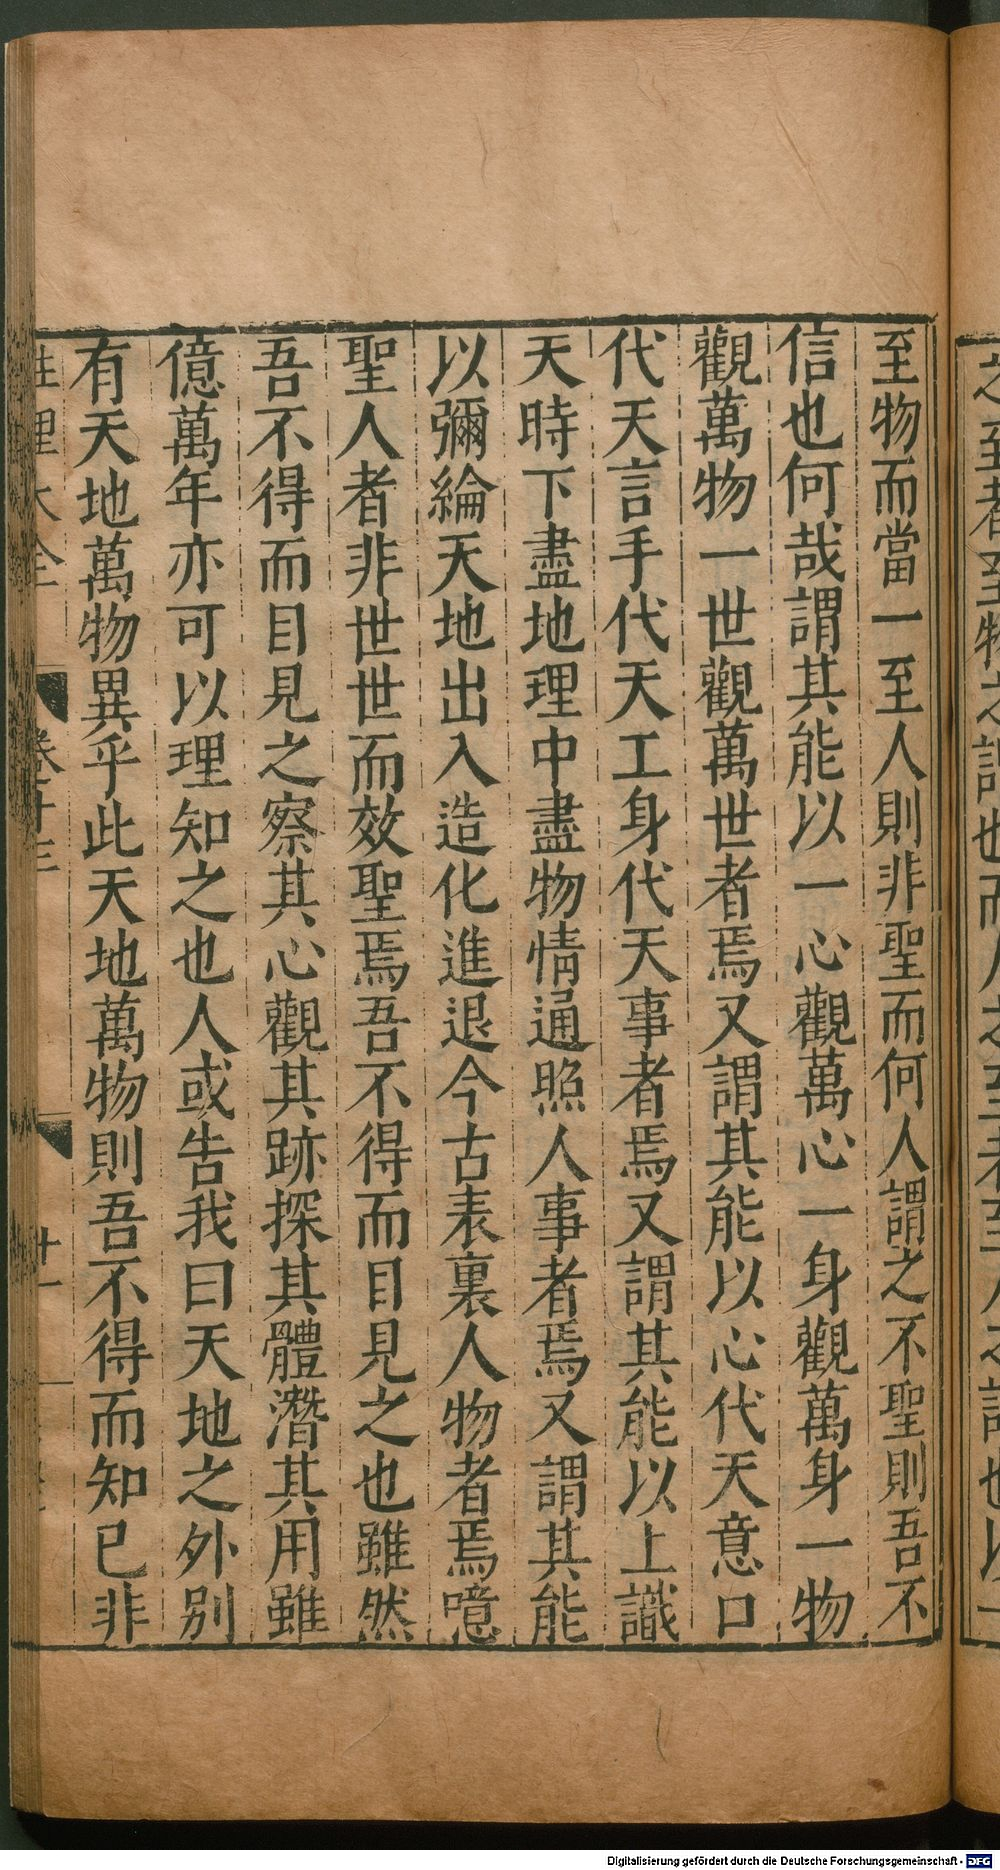 至物而當一至人則非聖而何人謂之不聖則吾不
信也何哉謂其能以一心觀萬心一身觀萬身一物
觀萬物一世觀萬世者焉又謂其能以心代天意口
代天言手代天工身代天事者焉又謂其能以上識
天時下盡地理中盡物情通照人事者焉又謂其能
以彌綸天地出入造化進退今古表裏人物者焉噫
聖人者非世世而效聖焉吾不得而目見之也雖然
吾不得而目見之察其心觀其跡探其體潛其用雖
億萬年亦可以理知之也人或告我曰天地之外別
有天地萬物異乎此天地萬物則吾不得而知已非
性理大全
廿一
Digitalisierung gefördert durch die Deutsche Forschungsgemeinschaft - DFG